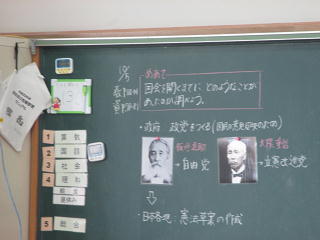 10/5
めあて
国会を開くまでに、どのようなことが
あったのか調べよう。
・政府 政党をつくる
板垣退助
→自由党
大隈重信
→立憲改進党
日本各地:憲法草案の作成
13
1 算数
2 国語
3 社会
4 理科
給食
昼休み
5 総合